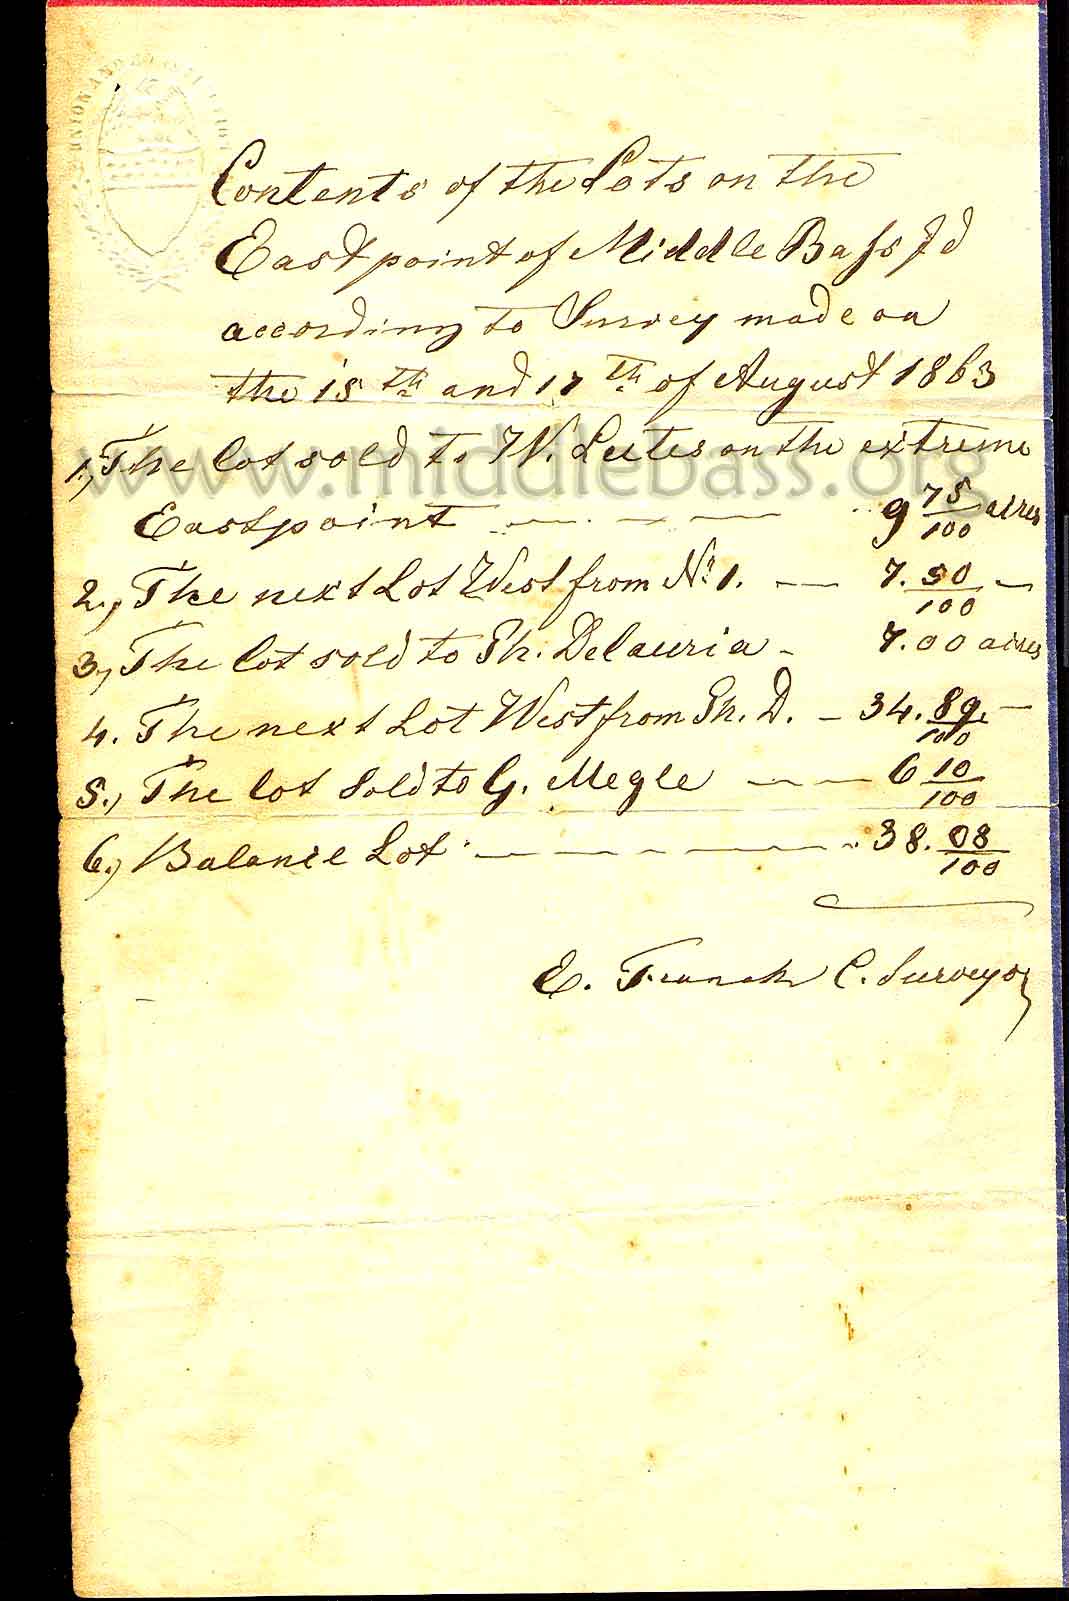 UNION AND
Contents of the Lots on the
East point of Middle Bass Id
according to Survey made on
the 15th and 17th of August 1863
www.middlebass.org
1., The lot sold to W. Lutes on the extreme
East point 9 75/100 acres
2., The next Lot West from No 1. — 7. 50/100 —
3., The lot sold to Ph. Delauria - 7.00 acres
4. The next Lot West from Ph. D. — 34. 89/100 —
5., The lot sold to G. Megle — 6 10/100
6., Balance Lot — 38. 08/100
E. Franck C. Surveyor